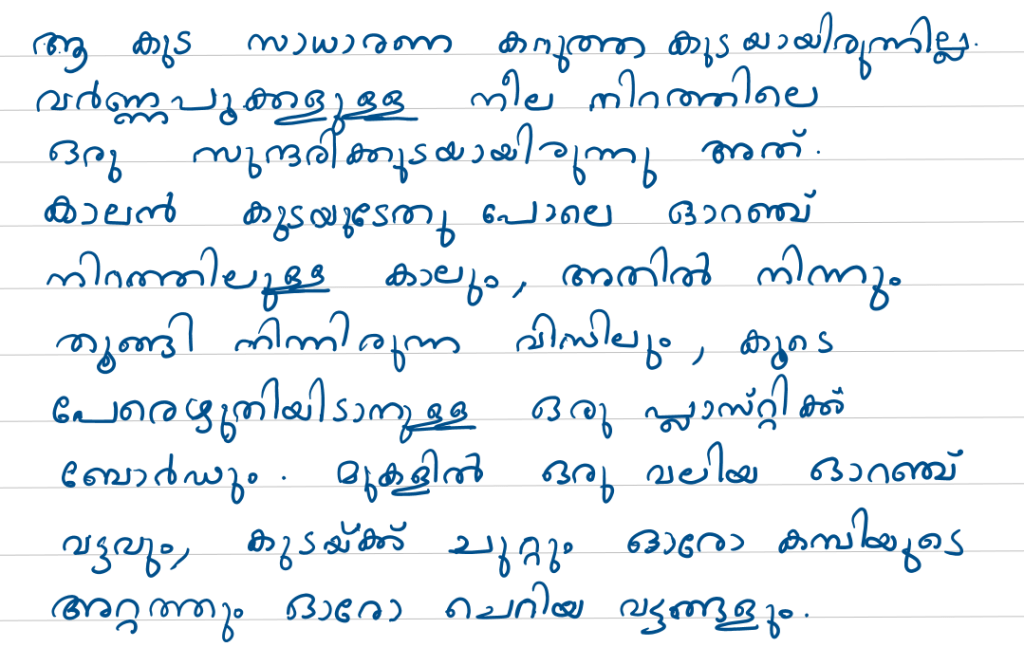 ആ കുട സാധാരണ കറുത്ത കുടയായിരുന്നില്ല.
വർണ്ണപൂക്കളുള്ള നീല നിറത്തിലെ
ഒരു സുന്ദരിക്കുടയായിരുന്നു അത്.
കാലൻ കുടയുടേതു പോലെ ഓറഞ്ച്
നിറത്തിലുള്ള കാലും, അതിൽ നിന്നും
തൂങ്ങി നിന്നിരുന്ന വിസിലും, കൂടെ
പേരെഴുതിയിടാനുള്ള ഒരു പ്ലാസ്റ്റിക്ക്
ബോർഡും. മുകളിൽ ഒരു വലിയ ഓറഞ്ച്
വട്ടവും, കുടയ്ക്ക് ചുറ്റും ഓരോ കമ്പിയുടെ
അറ്റത്തും ഓരോ ചെറിയ വട്ടങ്ങളും.